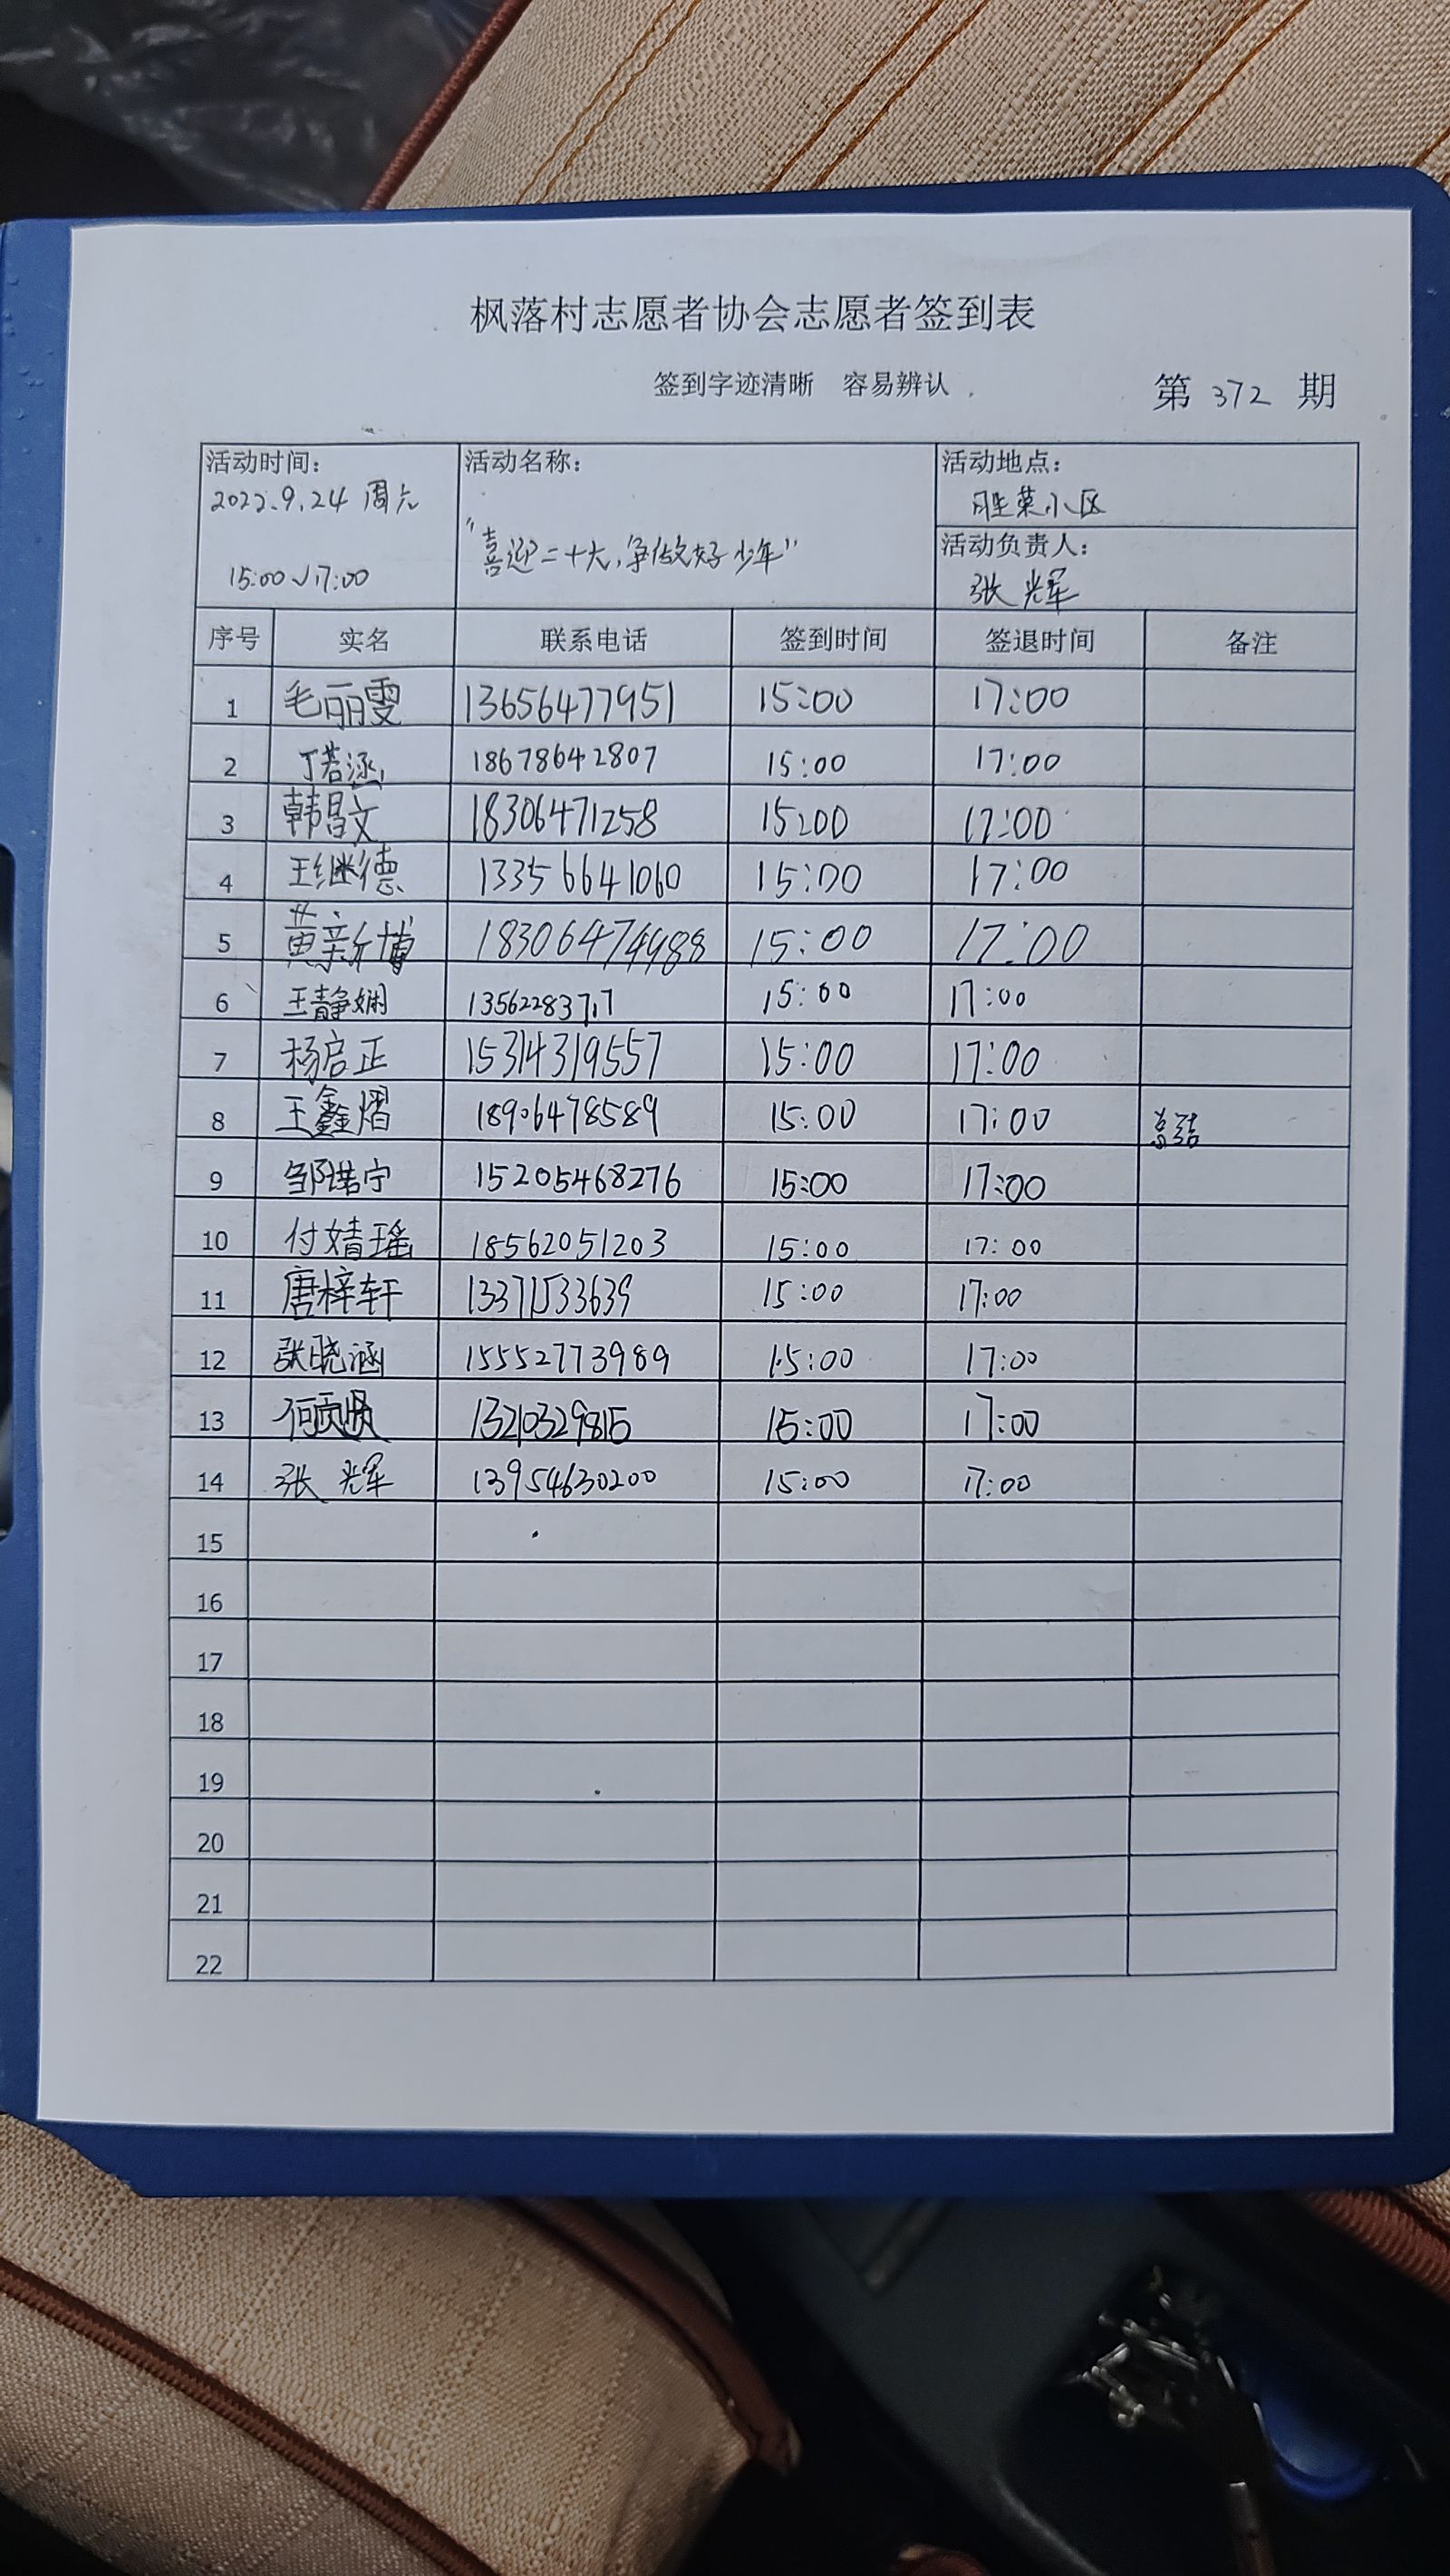 枫落村志愿者协会志愿者签到表
签到字迹清晰 容易辨认
第 372 期
活动时间：
2022.9.24 周六
15:00~17:00
活动名称：
"喜迎二十大,争做文好少年"
活动地点：
胜菜小区
活动负责人：
张辉
序号 实名 联系电话 签到时间 签退时间 备注
1 毛丽雯 13656477951 15:00 17:00
2 丁若涵 18678642807 15:00 17:00
3 韩昌文 18306471258 15:00 17:00
4 王继德 13356641060 15:00 17:00
5 黄新博 18306474988 15:00 17:00
6 王静娴 13562283717 15:00 17:00
7 杨启正 15314319557 15:00 17:00
8 王鑫熠 18906478589 15:00 17:00 总结
9 邹诺宁 15205468276 15:00 17:00
10 付婧瑶 18562051203 15:00 17:00
11 唐梓轩 13371533639 15:00 17:00
12 张晓涵 15552773989 15:00 17:00
13 何 15:00 17:00
14 张辉 13954630200 15:00 17:00
15
16
17
18
19
20
21
22